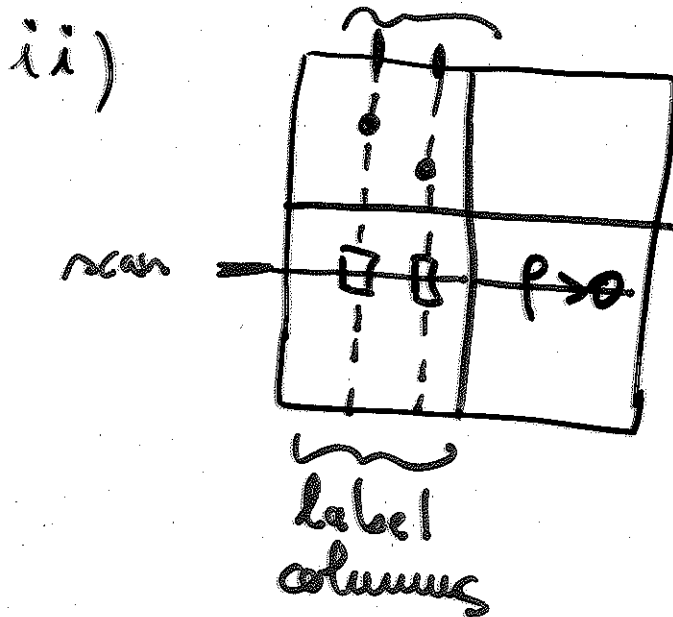 ii)
scan ρ > 0
label
columns